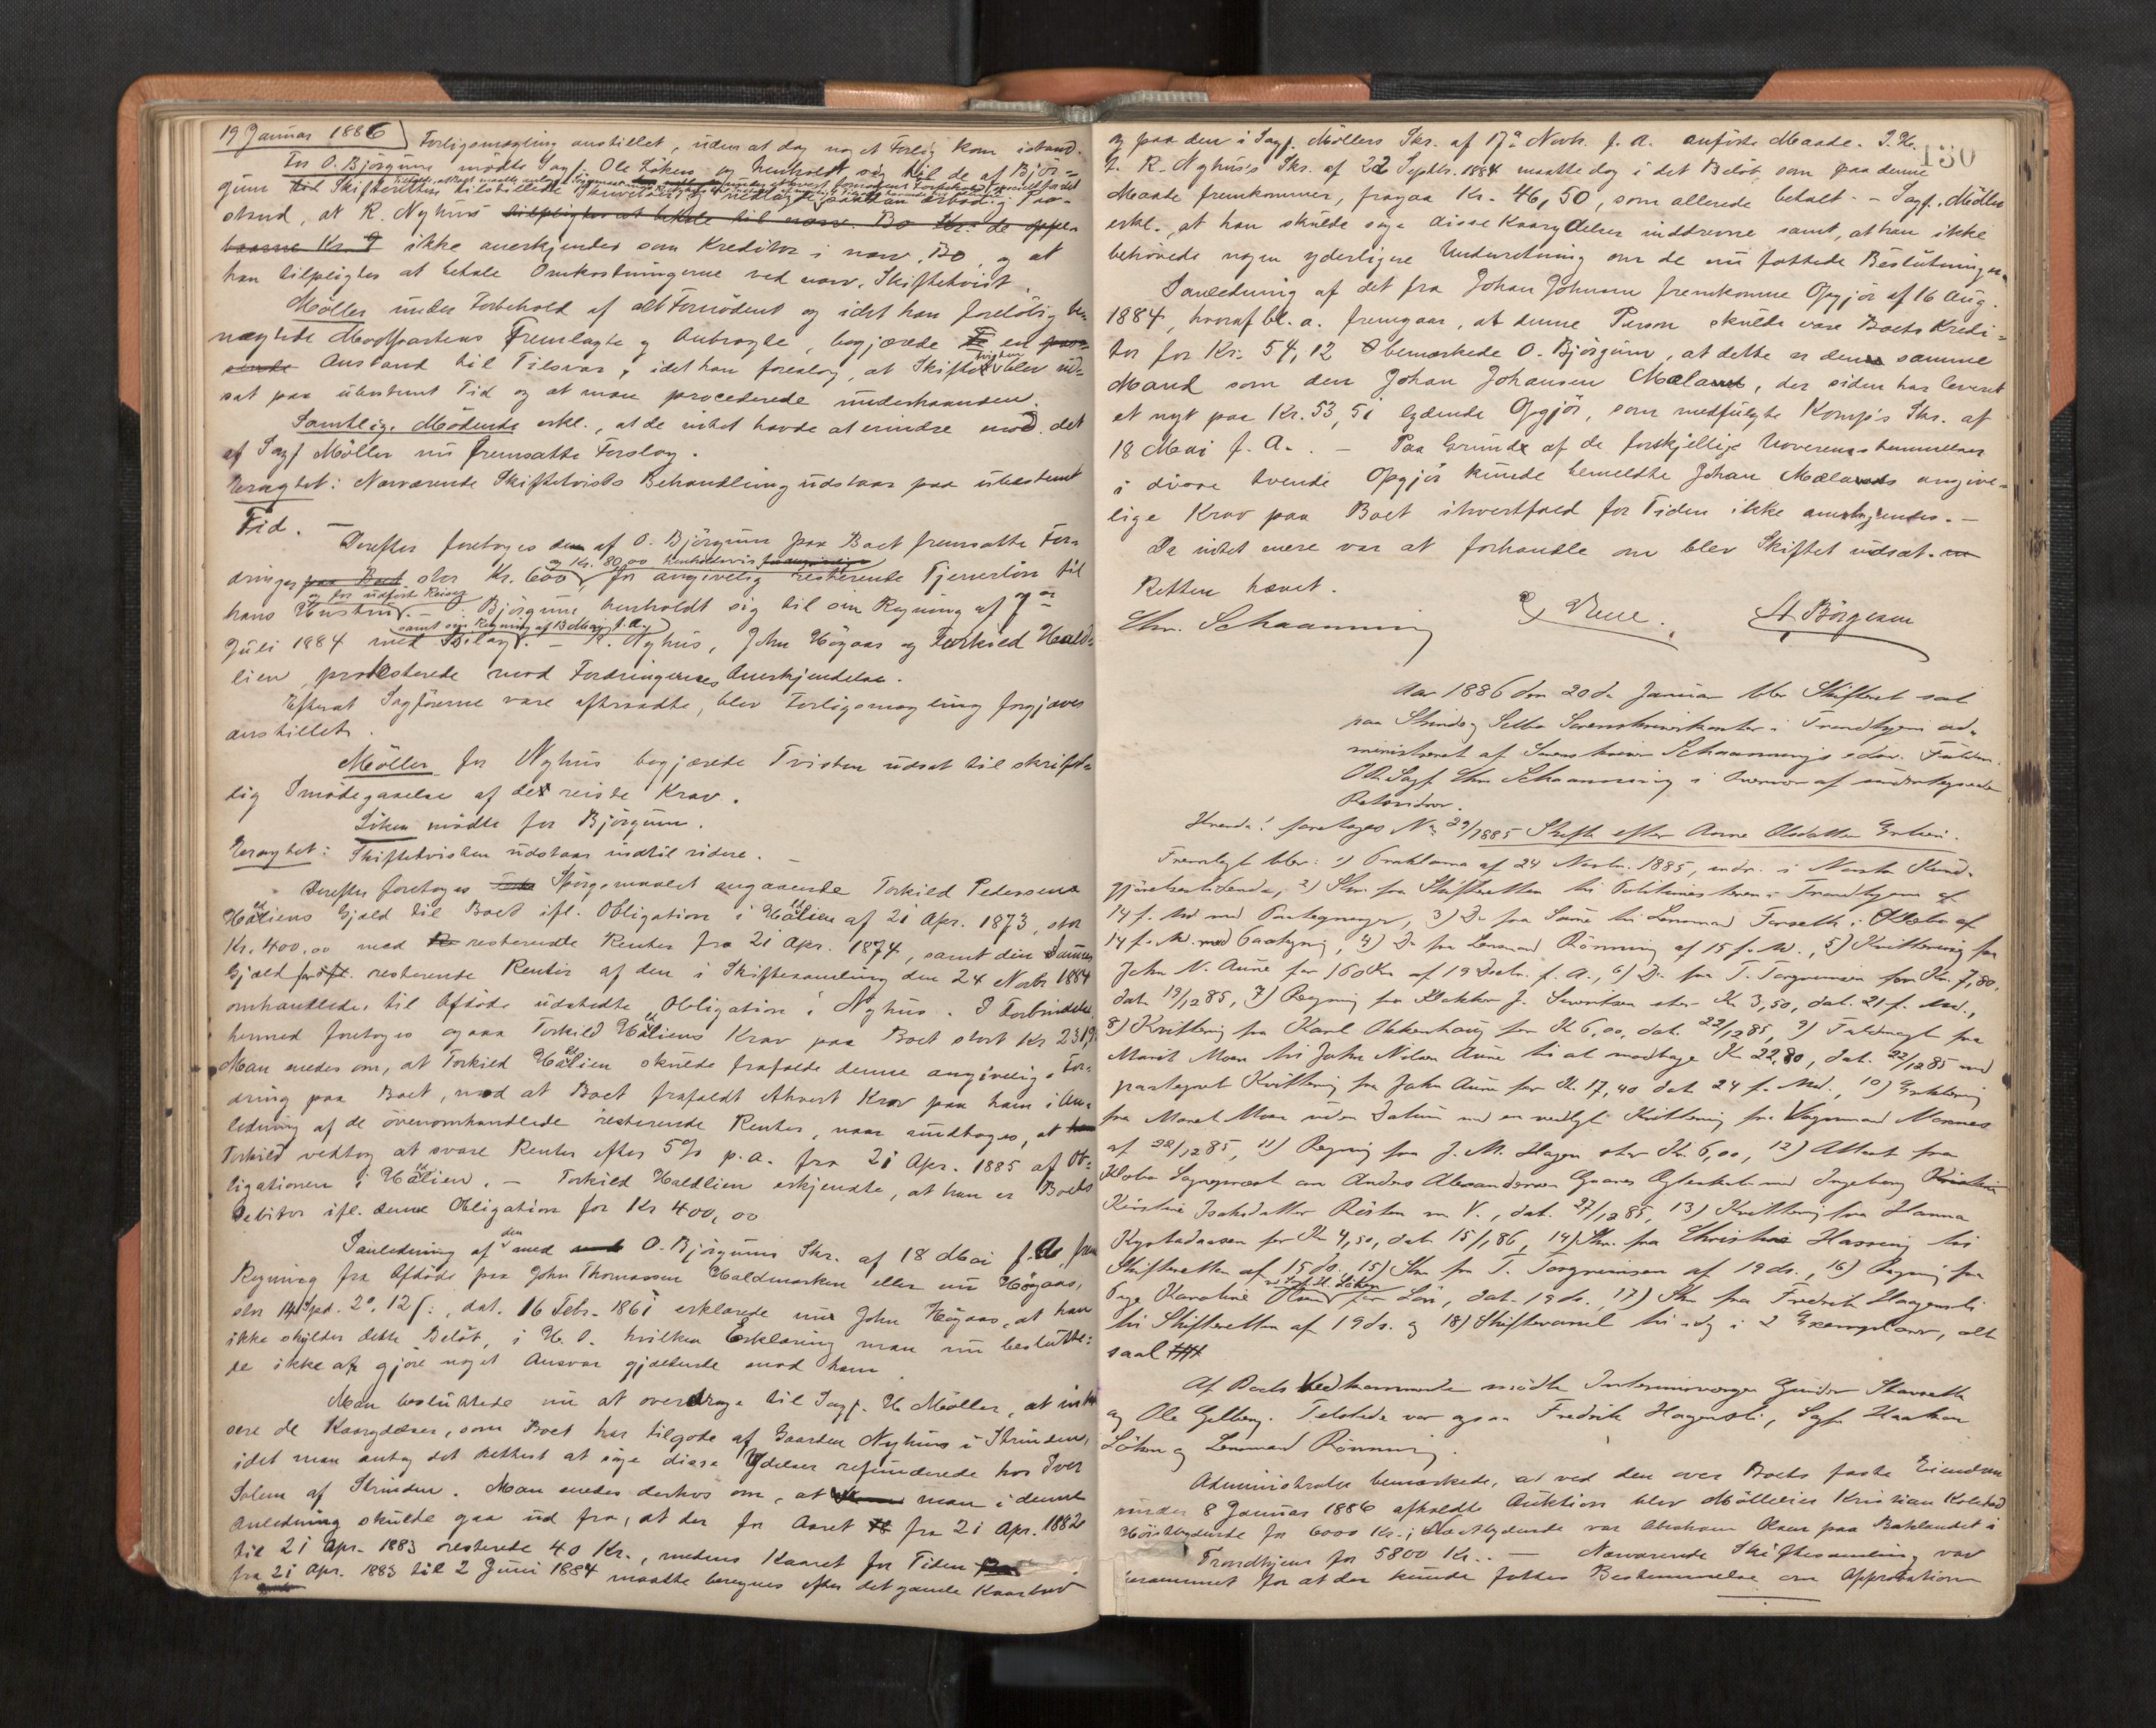 19 Januar 1886
Forligsmægling anstillet, uden at dog noget Forlig kom istand.
For O. Björgum mödte Sagf. Ole Löken og henholdt sig til de af Björ-
gum til Skifteretten tilstillede Skrivelser og nedlagde saadan Paa-
stand, at R. Nyhus tilpligtes at betale til nærv. Bo Kr. de oppe-
baarne Kr. ? ikke anerkjendes som Kreditor i nærv. Bo, og at
han tilpligtes at betale Omkostningerne ved nærv. Skiftetvist.
Möller under Forbehold af alt Fornödent og idet han forelöbig be-
nægtede Modpartens Fremlagte og Anbragte, begjærede en pas-
sende Anstand til Tilsvar, idet han foreslog, at Skiftetvisten blev ud-
sat paa ubestemt Tid og at man procederede underhaanden.
Samtlige Mödende erkl., at de intet havde at erindre mod det
af Sagf Möller nu fremsatte Forslag.
Eragtet: Nærværende Skiftetvists Behandling udstaar paa ubestemt
Tid. —
Derefter foretoges den af O. Björgum paa Boet fremsatte For-
og Kr. 80,00 henholdsvis for angivelige
dringer paa Boet stor Kr. 600 for angivelig resterende Tjenerlön til
og for udförte Reiser
hans Hustru. — Björgum henholdt sig til sin Regning af 7de
samt sin Regning af 13 Mai f. A.
Juli 1884 med Bilag. — R. Nyhus, John Högaas og Torkild Hald-
lien protesterede mod Fordringernes Anerkjendelse.
Efterat Sagförerne vare aftraadte, blev Forligsmægling forgjæves
anstillet.
Möller for Nyhus begjærede Tvisten udsat til skrift-
lig Imödegaaelse af det reiste Krav.
Löken mödte for Björgum.
Eragtet: Skiftetvisten udstaar indtil videre. —
Derefter foretoges Spörgsmaalet angaaende Torkild Pedersens
Haldliens Gjæld til Boet ifl. Obligation i Haldlien af 21 Apr. 1873, stor
Kr. 400,00 med resterende Renter fra 21 Apr. 1874, samt dennes
Gjæld for ifl. resterende Renter af den i Skiftesamling den 24 Novbr 1884
omhandlede, til Afdöde udstedte Obligation i Nyhus. I Forbindelse
hermed foretoges ogsaa Torkild Haldliens Krav paa Boet stort Kr 231,9
Man enedes om, at Torkild Haldlien skulde frafalde denne angivelige For-
dring paa Boet, mod at Boet frafaldt ethvert Krav paa ham i An-
ledning af de ovenomhandlede resterende Renter, naar undtages, at han
Torkild vedtog at svare Renter efter 5% p.a. fra 21 Apr. 1885 af Ob-
ligationen i Haldlien. — Torkild Haldlien erkjendte, at han er Boets
Debitor ifl. denne Obligation for Kr 400,00
I anledning af den med O. Björgums Skr. af 18 Mai f. A. frem
Regning fra Afdöde paa John Thomassen Haldmarken eller nu Högaas,
stor 14 Spd. 2o. 12 f:, dat. 16 Febr. 1861 erklærede nu John Högaas, at han
ikke skylder dette Belöb, i H. t. hvilken Erklæring man nu beslutte-
de ikke at gjöre noget Ansvar gjældende mod ham
Man besluttede nu at overdrage til Sagf. H Möller, at ind
sere de Kaarydelser, som Boet har tilgode af Gaarden Nyhus i Strinden,
idet man antog det rettest at söge disse Ydelser refunderede hos Iver
Solem af Strinden. Man enedes derhos om, at man i denne
Anledning skulde gaa ud fra, at der for Aaret fra 21 Apr. 1882
til 21 Apr. 1883 resterede 40 Kr., medens Kaaret for Tiden
fra 21 Apr. 1883 til 2 Juni 1884 maatte beregnes efter det gamle Kaarbrev
130
og paa den i Sagf. Möllers Skr. af 17de Novb. f. A. anförte Maade. I H.
t. R. Nyhus's Skr. af 22 Septbr. 1884 maatte dog i det Belöb, som paa denne
Maade fremkommer, fragaa Kr. 46,50, som allerede betalt. — Sagf. Möller
erkl., at han skulde söge disse Kaarydelser inddrevne samt, at han ikke
behövede nogen yderligere Underretning om de nu fattede Beslutninger.
I anledning af det fra Johan Johnsen fremkomne Opgjör af 16 Aug.
1884, hvoraf bl. a. fremgaar, at denne Person skulde være Boets Kredi-
tor for Kr. 54,12 bemærkede O. Björgum, at dette er den samme
Mand som den Johan Johansen Mæland, der siden har leveret
et nyt paa Kr. 53,51 lydende Opgjör, som medfulgte Komp's Skr. af
18 Mai f. A. — Paa Grund af de forskjellige Uoverensstemmelser
i disse tvende Opgjör kunde bemeldte Johan Mælands angive-
lige Krav paa Boet ihvertfald for Tiden ikke anerkjendes. —
Da intet mere var at forhandle om blev Skiftet udsat.
Retten hævet.
Chr. Schaanning
Aar 1886 den 20de Januar blev Skifteret sat
paa Strinde og Selbu Sorenskriverkontor i Trondhjem ad-
ministreret af Sorenskriver Schaannings edsv. Fuldm.
O.R.Sagf. Chr. Schaanning i Overvær af undertegnede
Retsvidner.
Hvorda: foretoges No 29/1885 Skifte efter Anne Olsdatter
Fremlagt blev: 1) Proklama af 24 Novbr. 1885, indr. i Norsk Kund-
gjörelsestidende, 2) Skr. fra Skifteretten til Politimesteren i Trondhjem af
14 f. Md med Paategninger, 3) Do fra Samme til Lensmand Forseth i Klæbu af
14 f. M. med Paategning, 4) Do fra Lensmand Rönning af 15 f. M., 5) Kvittering fra
John N. Aune for 160 Kr af 19 Decbr. f. A., 6) Do fra T. Torgrimsen for Kr. 7,80,
dat. 19/12 85, 7) Regning fra Klokker J. stor Kr 3,50, dat. 21 f. Md.,
8) Kvittering fra Karl for Kr 6,00, dat. 22/12 85, 9) Fuldmagt fra
Marit Moen til John Nilsen Aune til at modtage Kr 22,80, dat. 22/12 85 med
paategnet Kvittering fra John Aune for Kr. 17,40 dat 24 f. Md., 10) Erklæring
fra Marit Moen uden Datum med en vedlagt Kvittering fra
af 22/12 85, 11) Regning fra J. M. Hagen stor Kr 6,00, 12) Attest fra
Klæbu Sognepræst om Anders Alexandersen Ægteskab med Ingeborg
Kirstine Isaksdatter Rösten m. V., dat. 27/12 85, 13) Kvittering fra Hanna
for Kr 4,50, dat 15/1 86, 14) Skr. fra Christine til
Skifteretten af 15 ds., 15) Skr. fra T. Torgrimsen af 19 ds., 16) Regning fra
Pige Karoline for Lön, dat. 19 ds. 17) Skr. fra Fredrik
til Skifteretten af 19 ds. og 18) Skiftevarsel til idag i 2 Exemplarer, alt
saal.
Af Boets Vedkommende mödte Interimsværge Gunder
og Ole. Tilstede var ogsaa Fredrik, Sagf. Haakon
Löken og Lensmand Rönning.
Administrator bemærkede, at ved den over Boets faste Eiendom
under 8 Januar 1886 afholdte Auktion blev Mölleeier Kristian
Höistbydende for 6000 Kr.; Næstbydende var Abraham Olsen paa Baklandet i
Trondhjem for 5800 Kr. — Nærværende Skiftesamling var
berammet for at der kunde fattes Bestemmelse om Approbation